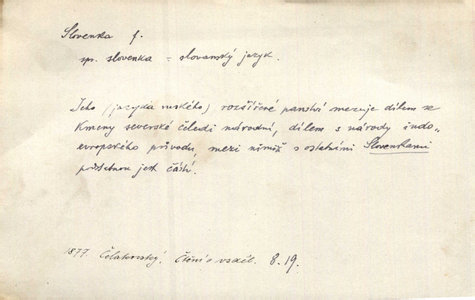 Slovenka f.
sp. slovenka = slovanský jazyk.
Jeho (jazyka ruského) rozšířené panství mezuje dílem se
kmeny severské čeledi národní, dílem s národy indo„
evropského původu, mezi nimiž s ostatními Slovenkami
podstatnou jest částí.
1877 Čelakovský. Čtení o vzděl. 8.19.